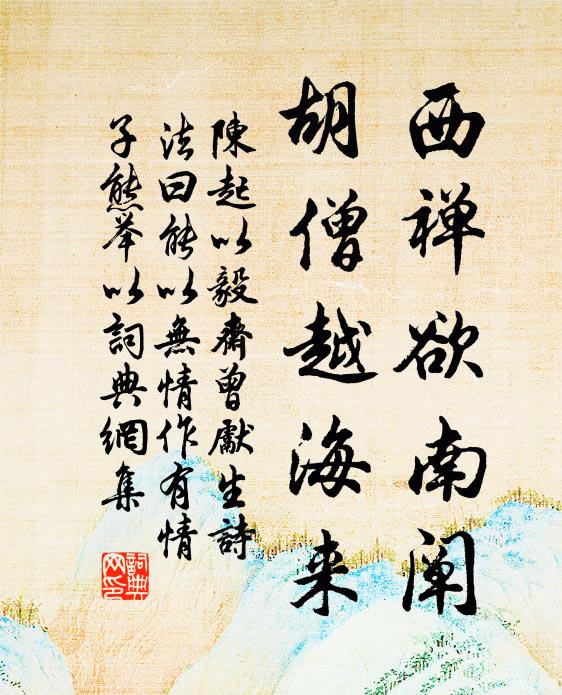 西禅欲南阐
胡僧越海来
陳起以毅齋曾獻生詩
法曰能以無情作有情
子熊举以詞典網集
詞典網印